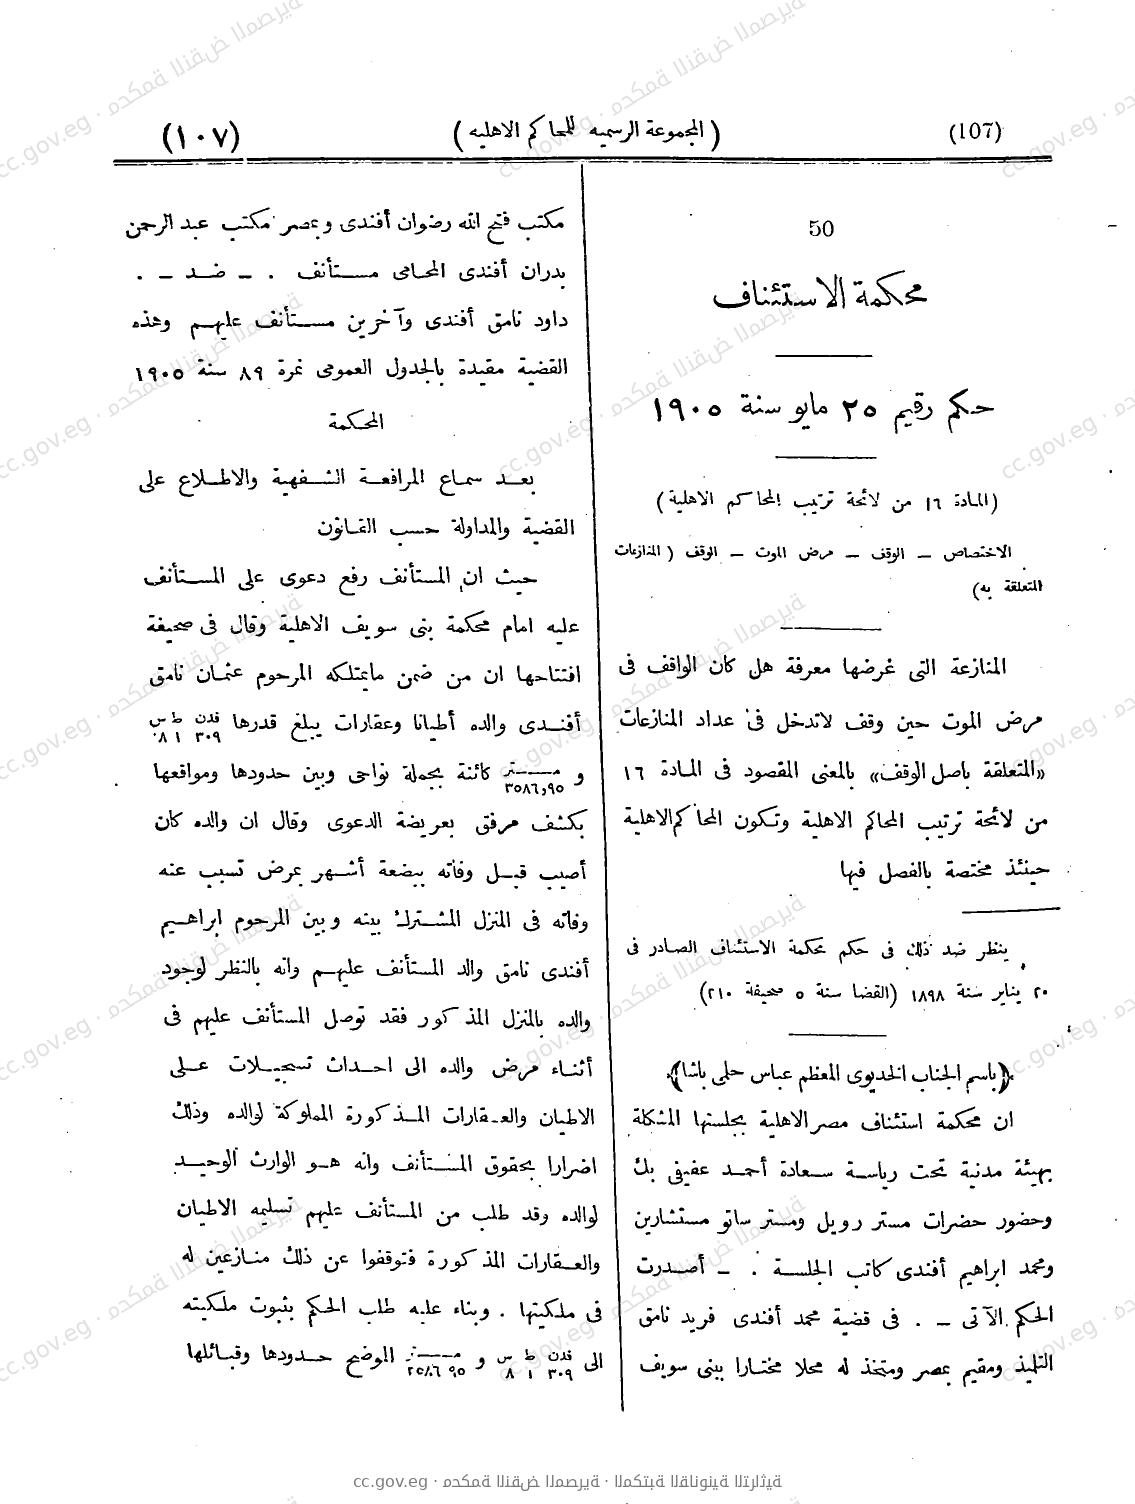 (107)
( المجموعة الرسمية للمحاكم الاهليه )
(١٠٧)
50
محكمة الاستئناف
حكم رقيم ٢٥ مايو سنة ١٩٠٥
(المادة ١٦ من لائحة ترتيب المحاكم الاهلية)
الاختصاص – الوقف – مرض الموت – الوقف ( المنازعات
المتعلقة به)
المنازعة التى غرضها معرفة هل كان الواقف فى
مرض الموت حين وقف لاتدخل فى عداد المنازعات
«المتعلقة باصل الوقف» بالمعنى المقصود فى المادة ١٦
من لائحة ترتيب المحاكم الاهلية وتكون المحاكم الاهلية
حينئذ مختصة بالفصل فيها
ينظر ضد ذلك فى حكم محكمة الاستئناف الصادر فى
٢٠ يناير سنة ١٨٩٨ (القضا سنة ٥ صحيفة ٢١٠)
﴿باسم الجناب الخديوى المعظم عباس حلمى باشا﴾
ان محكمة استئناف مصر الاهلية بجلستها المشكلة
بهيئة مدنية تحت رياسة سعادة أحمد عفيفى بك
وحضور حضرات مستر رويل ومستر ساتو مستشارين
ومحمد ابراهيم أفندى كاتب الجلسة . – أصدرت
الحكم الآتى – . فى قضية محمد أفندى فريد نامق
التلميذ ومقيم بمصر ومتخذ له محلا مختارا ببنى سويف
مكتب فتح الله رضوان أفندى وبمصر مكتب عبد الرحمن
بدران أفندى المحامى مستأنف . – ضد – .
داود نامق أفندى وآخرين مستأنف عليهم وهذه
القضية مقيدة بالجدول العمومى نمرة ٨٩ سنة ١٩٠٥
المحكمة
بعد سماع المرافعة الشفهية والاطلاع على
القضية والمداولة حسب القانون
حيث ان المستأنف رفع دعوى على المستأنف
عليه امام محكمة بنى سويف الاهلية وقال فى صحيفة
افتتاحها ان من ضمن مايمتلكه المرحوم عثمان نامق
أفندى والده أطيانا وعقارات يبلغ قدرها فدن ٣٠٩ ط ١ س ٨
و متر ٣٥٨٦,٩٥ كائنة بجملة نواحى وبين حدودها ومواقعها
بكشف مرفق بعريضة الدعوى وقال ان والده كان
أصيب قبل وفاته ببضعة أشهر بمرض تسبب عنه
وفاته فى المنزل المشترك بينه وبين المرحوم ابراهيم
أفندى نامق والد المستأنف عليهم وانه بالنظر لوجود
والده بالمنزل المذكور فقد توصل المستأنف عليهم فى
أثناء مرض والده الى احداث تسجيلات على
الاطيان والعقارات المذكورة المملوكة لوالده وذلك
اضرارا بحقوق المستأنف وانه هو الوارث الوحيد
لوالده وقد طلب من المستأنف عليهم تسليمه الاطيان
والعقارات المذكورة فتوقفوا عن ذلك منازعين له
فى ملكيتها . وبناء عليه طلب الحكم بثبوت ملكيته
الى فدن ٣٠٩ ط ١ س ٨ و متر ٣٥٨٦,٩٥ الموضح حدودها وقبائلها
cc.gov.eg · محكمة النقض المصرية · المكتبة القانونية التراثية